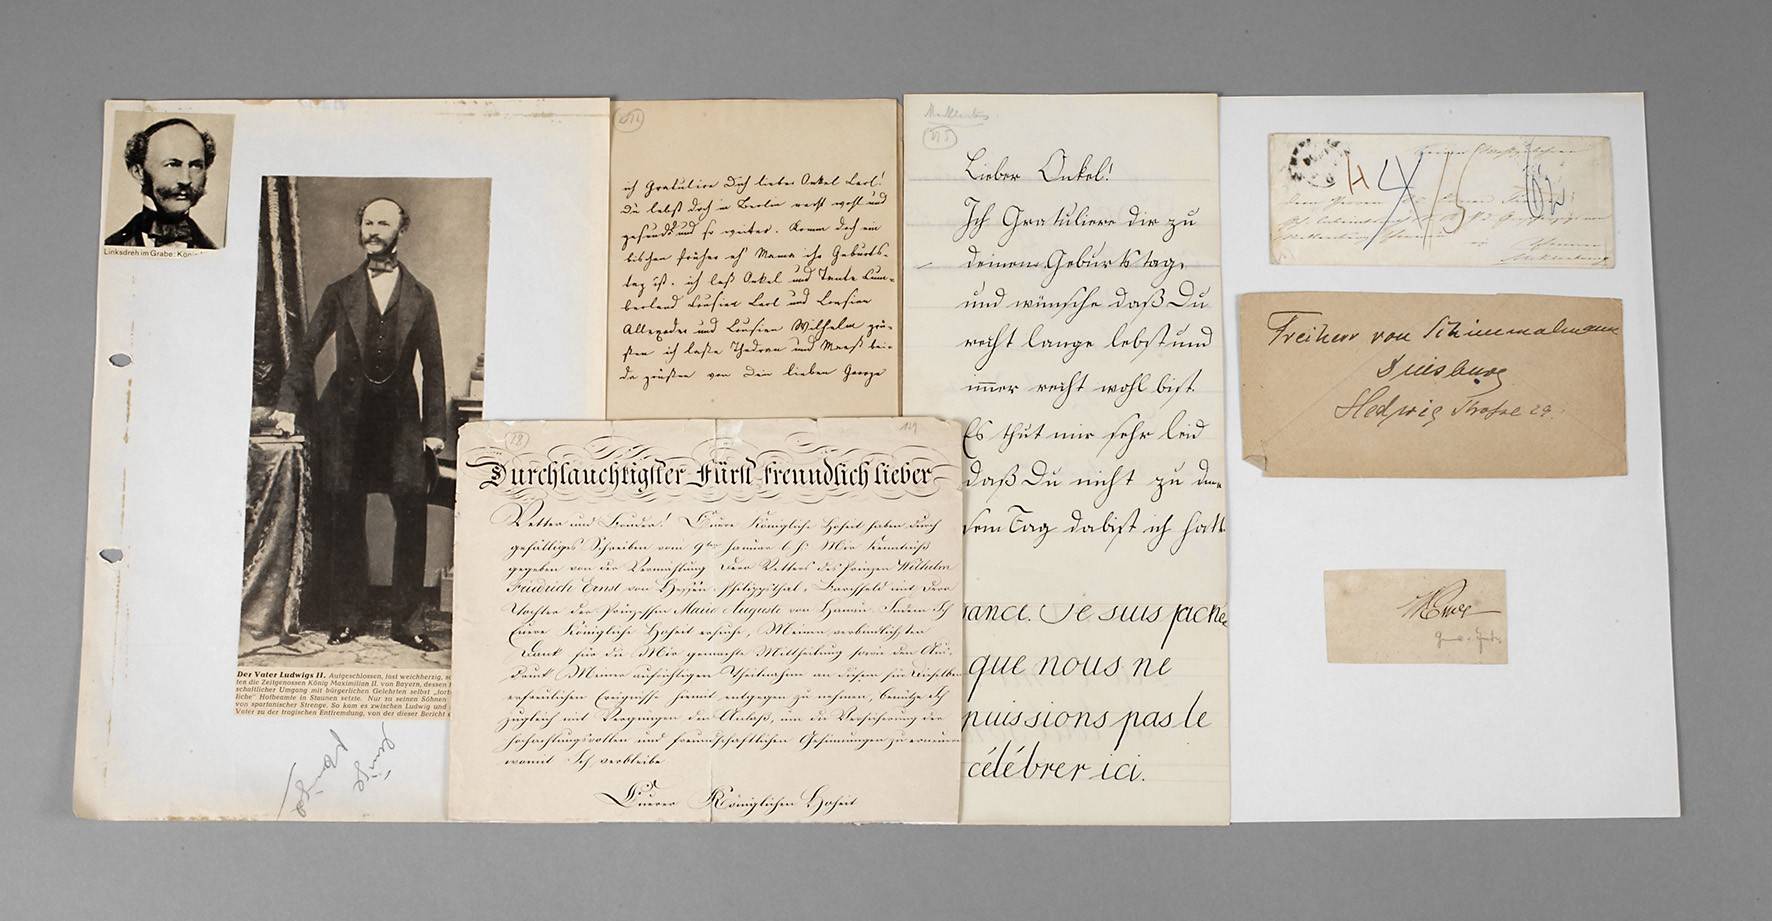 Linksdreh im Grabe: Köni
Der Vater Ludwigs II. Aufgeschlossen, fast weichherzig, sc
ten die Zeitgenossen König Maximilian II. von Bayern, dessen
schaftlicher Umgang mit bürgerlichen Gelehrten selbst „fort
liche" Hofbeamte in Staunen setzte. Nur zu seinen Söhnen
von spartanischer Strenge. So kam es zwischen Ludwig und
Vater zu der tragischen Entfremdung, von der dieser Bericht
ich Gratulire Dich lieber Onkel Carl!
Du lebst doch in Berlin recht wohl und
gesund und so weiter. Komm doch ein
bischen früher eh' Mama ihr Geburts-
tag ist. ich laß Onkel und Tante Cum-
berland Cousine Carl und Cousine
Allexander und Cousine Wilhelm grü-
ßen ich laße Thedran und bei-
de grüßen von Dein lieben George
Durchlauchtigster Fürst freundlich lieber
Vetter und Bruder! Euere Königliche Hoheit haben durch
gefälliges Schreiben vom 9ten Januar l. Js. Mir Kenntniß
gegeben von der Vermählung Ihres Vetters des Prinzen Wilhelm
Friedrich Ernst von Hessen-Philippsthal-Barchfeld mit der
Tochter der Prinzessin Marie Auguste von Hanau. Indem Ich
Euere Königliche Hoheit ersuche, Meinen verbindlichsten
Dank für die Mir gemachte Mittheilung sowie den Aus-
druck Meiner aufrichtigen Theilnahme an diesem für Dieselben
erfreulichen Ereignisse hiemit entgegen zu nehmen, benütze Ich
zugleich mit Vergnügen den Anlaß, um die Versicherung der
hochachtungsvollen und freundschaftlichen Gesinnungen zu erneuern
womit Ich verbleibe
Euerer Königlichen Hoheit
Lieber Onkel!
Ich Gratuliere dir zu
deinem Geburtstag,
und wünsche daß Du
recht lange lebst und
immer recht wohl bist
Es thut mir sehr leid
daß Du nicht zu die-
sem Tag da bist ich hatt
sance. Je suis fache
que nous ne
puissions pas le
célébrer ici.
Freiherr von Schimmelmann
Duisburg
Hedwig Straße 29.